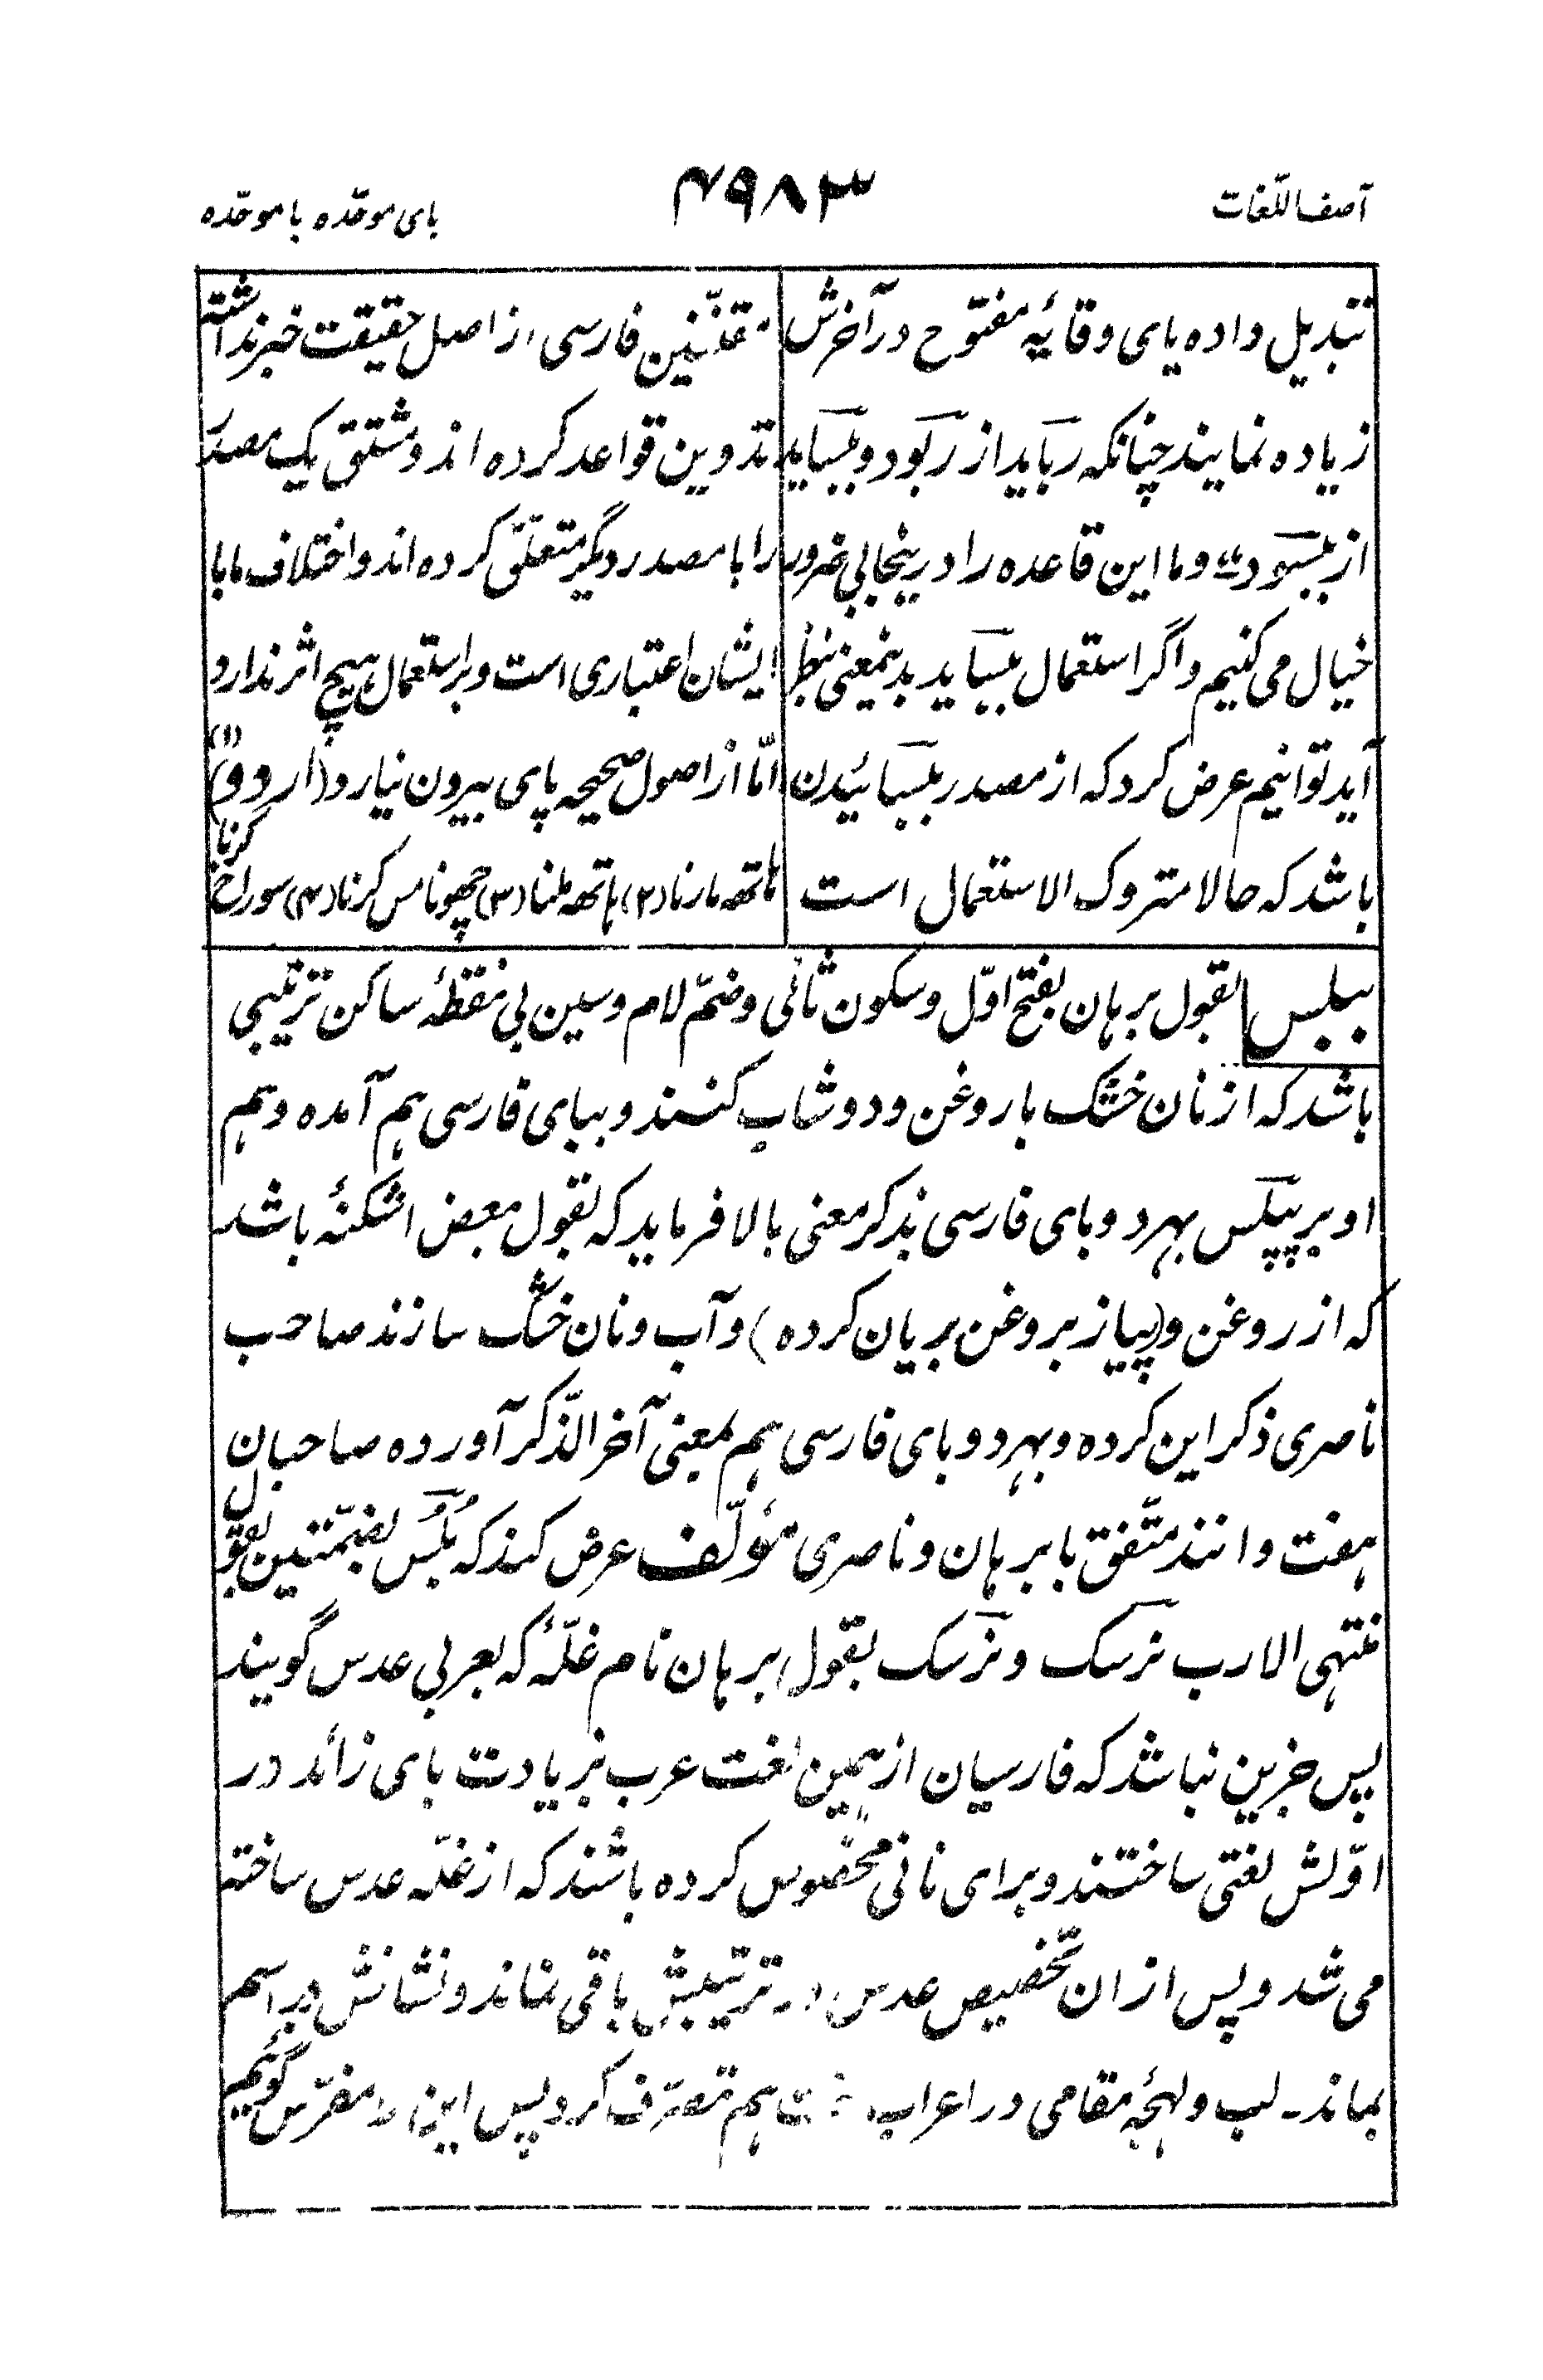 آصف اللّغات
۴۹۸۳
بای موحّده با موحّده
تبدیل داده یای وقائیه مفتوح در آخرش
زیاده نمایند چنانکه رباید از ربود و ببساید
از ببسود،، و ما این قاعده را درینجا بی ضرور
خیال می کنیم و اگر استعمال ببساید بدینمعنی بنظر
آید توانیم عرض کرد که از مصدر ببسائیدن
باشد که حالا متروک الاستعمال است
مقنّنین فارسی از اصل حقیقت خبر نداشته
تدوین قواعد کرده اند و مشتق یک مصدر
را با مصدر دیگر متعلّق کرده اند و اختلاف ما با
ایشان اعتباری است و بر استعمال هیچ اثر ندارد
امّا از اصول صحیحه پای بیرون نیارد (اردو) (۱)
هاتھ مارنا (۲) هاتھ ملنا (۳) چھونا مس کرنا (۴) سوراخ کرنا
ببلس بقول برهان بفتح اوّل و سکون ثانی و ضمّ لام و سین بی نقطهٔ ساکن ترتیبی
باشد که از نان خشک با روغن و دوشاب کنند و ببای فارسی هم آمده و هم
او بر پپلس بهر دو بای فارسی بذکر معنی بالا فرماید که بقول بعض اشکنهٔ باشد
که از روغن و (پیاز بروغن بریان کرده) و آب و نان خشک سازند صاحب
ناصری ذکر این کرده و بهر دو بای فارسی هم بمعنی آخر الذّکر آورده صاحبان
هفت و انند متّفق با برهان و ناصری مؤلّف عرض کند که بُلُس بضمّتین بقول
منتهی الارب نرسک و نرسک بقول برهان نام غلّهٔ که بعربی عدس گویند
پس جزین نباشد که فارسیان از همین لغت عرب بزیادت بای زائد در
اوّلش لغتی ساختند و برای نانی مخصوص کرده باشند که از غلّه عدس ساخته
می شد و پس از ان تخصیص عدس در ترتیبش باقی نماند و نشانش در اسم
بماند۔ لب و لهجهٔ مقامی در اعراب هم تصرّف کرد پس این را مفرّس گوئیم